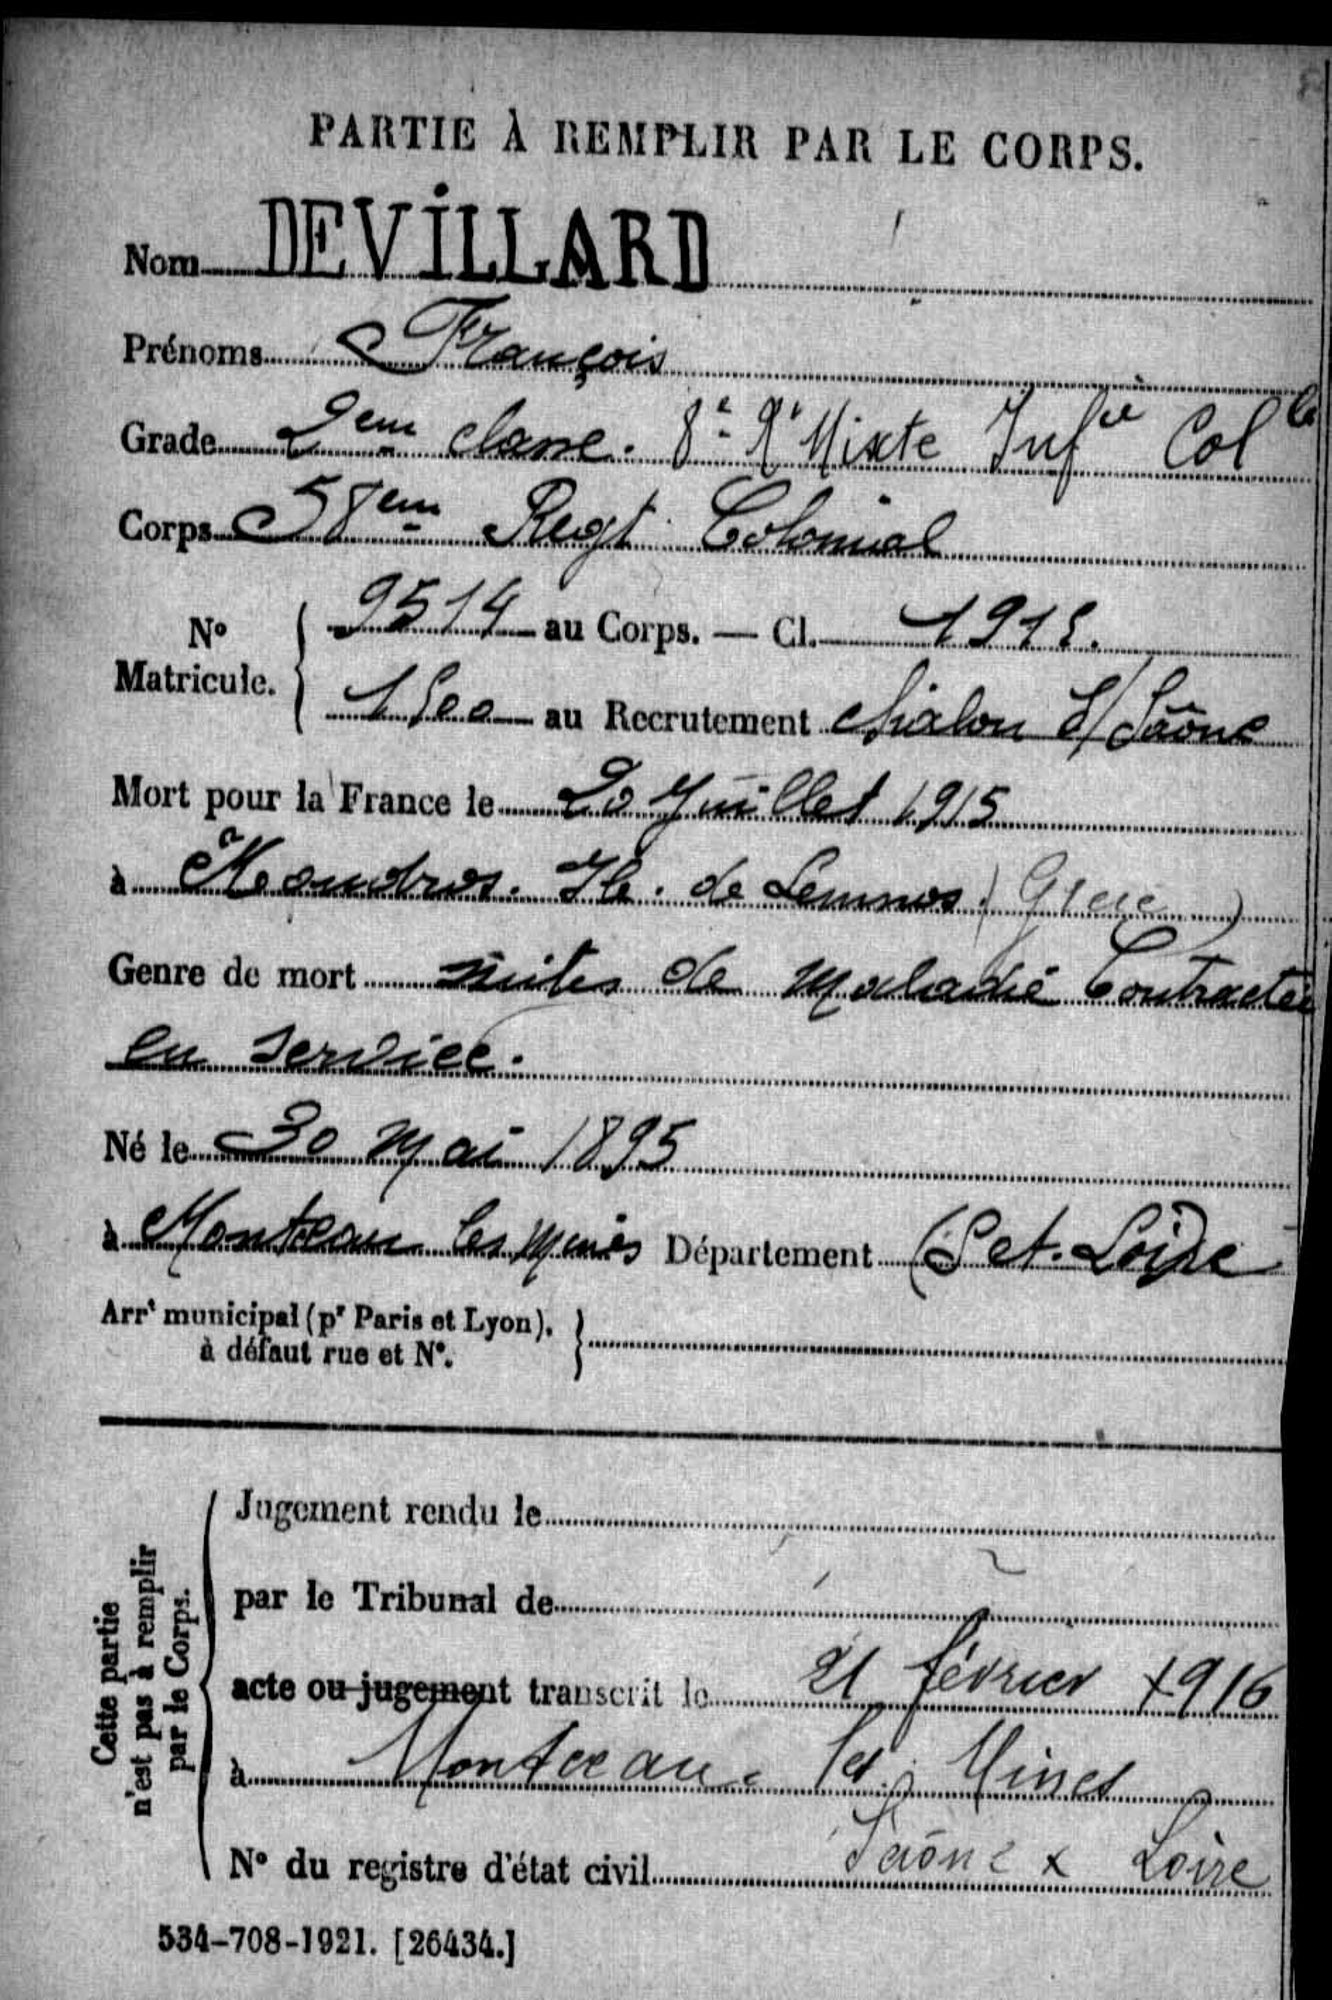 PARTIE À REMPLIR PAR LE CORPS.
Nom DEVILLARD
Prénoms François
Grade 2em classe. 8e Rt Mixte Infie Colle
Corps 58em Regt Colonial
N° Matricule. 9514 au Corps. — Cl. 1915.
1500 au Recrutement Chalon S/Saône
Mort pour la France le 20 Juillet 1915
à Moudros. Ile. de Lemnos. (Grèce)
Genre de mort suites de maladie Contractée
en service.
Né le 30 Mai 1895
à Montceau les Mines Département (S et. Loire
Arrt municipal (pr Paris et Lyon),
à défaut rue et N°.
Cette partie
n'est pas à remplir
par le Corps.
Jugement rendu le
par le Tribunal de
acte ou jugement transcrit le 21 février 1916
à Montceau-les-Mines
Saône & Loire
N° du registre d'état civil
534-708-1921. [26434.]